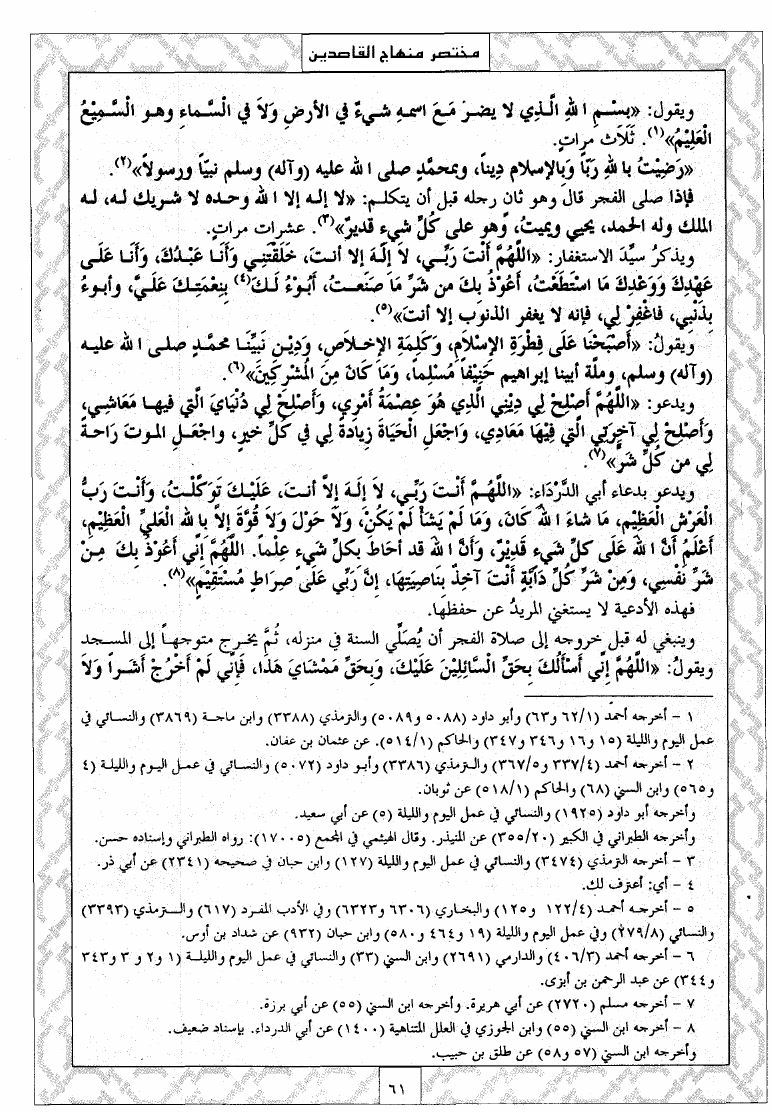 مختصر منهاج القاصدين
ويقول: «بِسْمِ اللهِ الَّذِي لا يضرّ مَعَ اسمهِ شيءٌ في الأرضِ وَلاَ في السَّماءِ وهو السَّمِيْعُ
العَلِيْمُ»(١). ثَلاَثَ مراتٍ.
«رَضِيْتُ باللهِ رَبّاً وَبِالإسلامِ دِيناً، وبمحمَّدٍ صلى الله عليه (وآله) وسلم نبيّاً ورسولاً»(٢).
فإذا صلى الفجر قال وهو ثان رجله قبل أن يتكلم: «لا إله إلا الله وحده لا شريك له، له
الملك وله الحمد، يحيي ويميتُ، وهو على كُلِّ شيءٍ قديرٌ»(٣). عشرات مراتٍ.
ويذكرُ سيِّدَ الاستغفار: «اللَّهُمَّ أَنْتَ رَبِّي، لاَ إِلَهَ إلا أنتَ، خَلَقْتَنِي وَأَنَا عَبْدُكَ، وَأَنَا عَلَى
عَهْدِكَ وَوَعْدِكَ مَا اسْتَطَعْتُ، أَعُوْذُ بِكَ من شَرِّ مَا صَنَعتُ، أَبُوْءُ لَكَ(٤) بِنِعْمَتِكَ عَلَيَّ، وأبوءُ
بِذَنْبِي، فاغْفِرْ لِي، فإنه لا يغفر الذنوب إلا أنتَ»(٥).
ويقولُ: «أَصْبَحْنَا عَلَى فِطْرَةِ الإِسْلاَمِ، وَكَلِمَةِ الإخلاَصِ، وَدِيْنِ نَبِيِّنا محمَّدٍ صلى الله عليه
(وآله) وسلم، وملَّة أبينا إبراهيم حَنِيْفاً مُسْلِماً، وَمَا كَانَ مِنَ المُشْرِكِينَ»(٦).
ويدعو: «اللَّهُمَّ أَصْلِحْ لِي دِيْنِي الَّذِي هُوَ عِصْمَةُ أَمْرِي، وَأَصْلِحْ لِي دُنْيَايَ الَّتِي فيهـا مَعَاشِي،
وَأَصْلِحْ لِي آخِرَتِي الَّتِي فِيْهَا مَعَادِي، وَاجْعَلِ الحَيَاةَ زِيادةً لِي في كُلِّ خيرٍ، واجعَلِ الموتَ رَاحـةً
لِي من كُلِّ شَرٍّ»(٧).
ويدعو بدعاء أبي الدَّرْدَاءِ: «اللَّهُمَّ أَنْتَ رَبِّي، لاَ إِلَهَ إلاَّ أنتَ، عَلَيْكَ تَوَكَّلْتُ، وَأَنْتَ رَبُّ
العَرْشِ العَظِيْمِ، مَا شاءَ اللهُ كَانَ، وَمَا لَمْ يَشَأْ لَمْ يَكُنْ، وَلاَ حَوْلَ وَلاَ قُوَّةَ إلاَّ باللهِ العَلِيِّ العَظِيْمِ،
أَعْلَمُ أَنَّ اللهَ عَلَى كلِّ شيءٍ قَدِيْرٌ، وَأَنَّ اللهَ قد أحَاطَ بكلِّ شيءٍ عِلْماً. اللَّهُمَّ إنِّي أَعُوْذُ بِكَ مِـنْ
شَرِّ نَفْسِي، وَمِنْ شَرِّ كُلِّ دَابَّةٍ أَنْتَ آخِذٌ بِنَاصِيَتِهَا، إنَّ رَبِّي عَلَى صِرَاطٍ مُسْتَقِيْمٍ»(٨).
فهذه الأدعية لا يستغني المريدُ عن حفظها.
وينبغي له قبل خروجه إلى صلاة الفجر أن يُصَلِّي السنة في منزله، ثُمَّ يخرج متوجهـاً إلى المسـجد
ويقولُ: «اللَّهُمَّ إنِّي أَسْأَلُكَ بِحَقِّ السَّائِلِيْنَ عَلَيْكَ، وَبِحَقِّ مَمْشَايَ هَذَا، فَإنِّي لَمْ أَخْرُجْ أَشَراً وَلاَ
١ - أخرجه أحمد (١/٦٢ و٦٣) وأبو داود (٥٠٨٨ و٥٠٨٩) والترمذي (٣٣٨٨) وابن ماجة (٣٨٦٩) والنسائي في
عمل اليوم والليلة (١٥ و١٦ و٣٤٦ و٣٤٧) والحاكم (١/٥١٤). عن عثمان بن عفان.
٢ - أخرجه أحمد (٤/٣٣٧ و٥/٣٦٧) والـترمذي (٣٣٨٦) وأبـو داود (٥٠٧٢) والنسـائي في عمـل اليـوم والليلـة (٤
و٥٦٥) وابن السني (٦٨) والحاكم (١/٥١٨) عن ثوبان.
وأخرجه أبو داود (١٩٢٥) والنسائي في عمل اليوم والليلة (٥) عن أبي سعيد.
وأخرجه الطبراني في الكبير (٢٠/٣٥٥) عن المنيذر. وقال الهيثمي في المجمع (١٧٠٠٥): رواه الطبراني وإسناده حسن.
٣ - أخرجه الترمذي (٣٤٧٤) والنسائي في عمل اليوم والليلة (١٢٧) وابن حبان في صحيحه (٢٣٤١) عن أبي ذر.
٤ - أي: أعترف لك.
٥ - أخرجـه أحمـد (٤/١٢٢ و١٢٥) والبخاري (٦٣٠٦ و٦٣٢٣) وفي الأدب المفـرد (٦١٧) والـترمذي (٣٣٩٣)
والنسائي (٨/٢٧٩) وفي عمل اليوم والليلة (١٩ و٤٦٤ و٥٨٠) وابن حبان (٩٣٢) عن شداد بن أوس.
٦ - أخرجه أحمد (٣/٤٠٦) والدارمي (٢٦٩١) وابن السني (٣٣) والنسائي في عمل اليوم والليلـة (١ و٢ و٣ و٣٤٣
و٣٤٤) عن عبد الرحمن بن أبزى.
٧ - أخرجه مسلم (٢٧٢٠) عن أبي هريرة. وأخرجه ابن السني (٥٥) عن أبي برزة.
٨ - أخرجه ابن السني (٥٥) وابن الجوزي في العلل المتناهية (١٤٠٠) عن أبي الدرداء. بإسناد ضعيف.
وأخرجه ابن السني (٥٧ و٥٨) عن طلق بن حبيب.
٦١